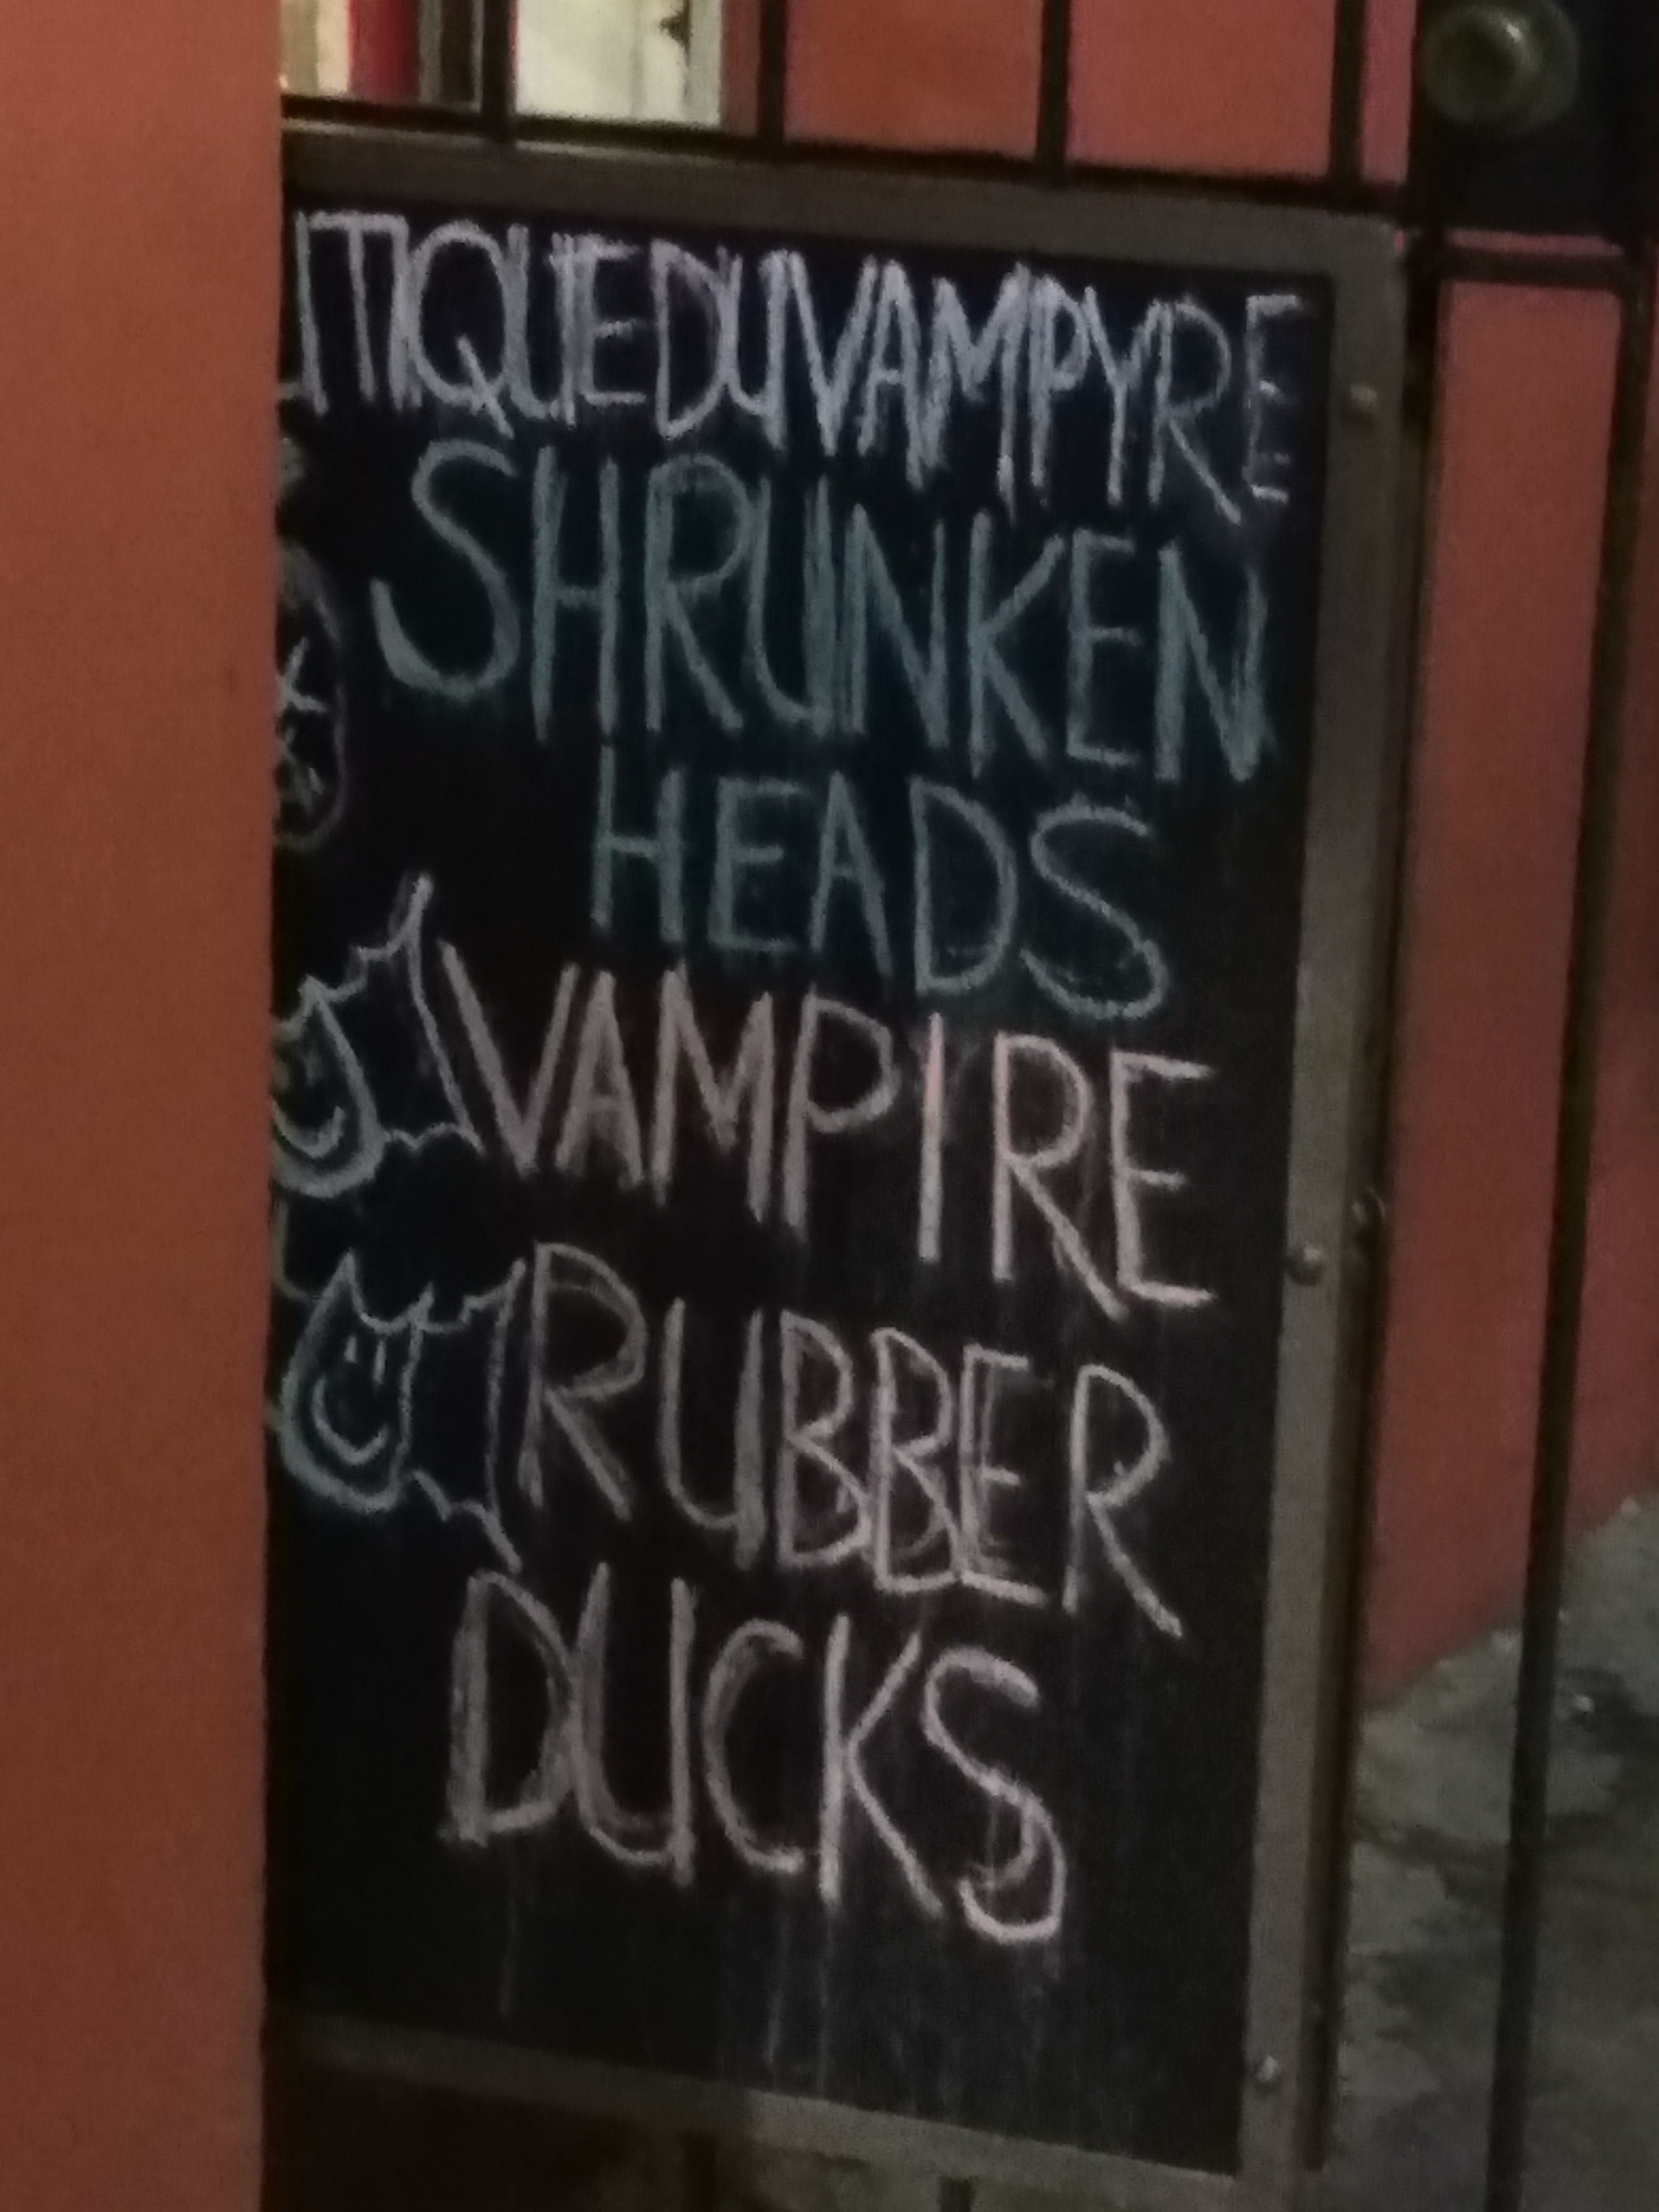 UTIQUE DU VAMPYRE
SHRUNKEN
HEADS
VAMPIRE
RUBBER
DUCKS